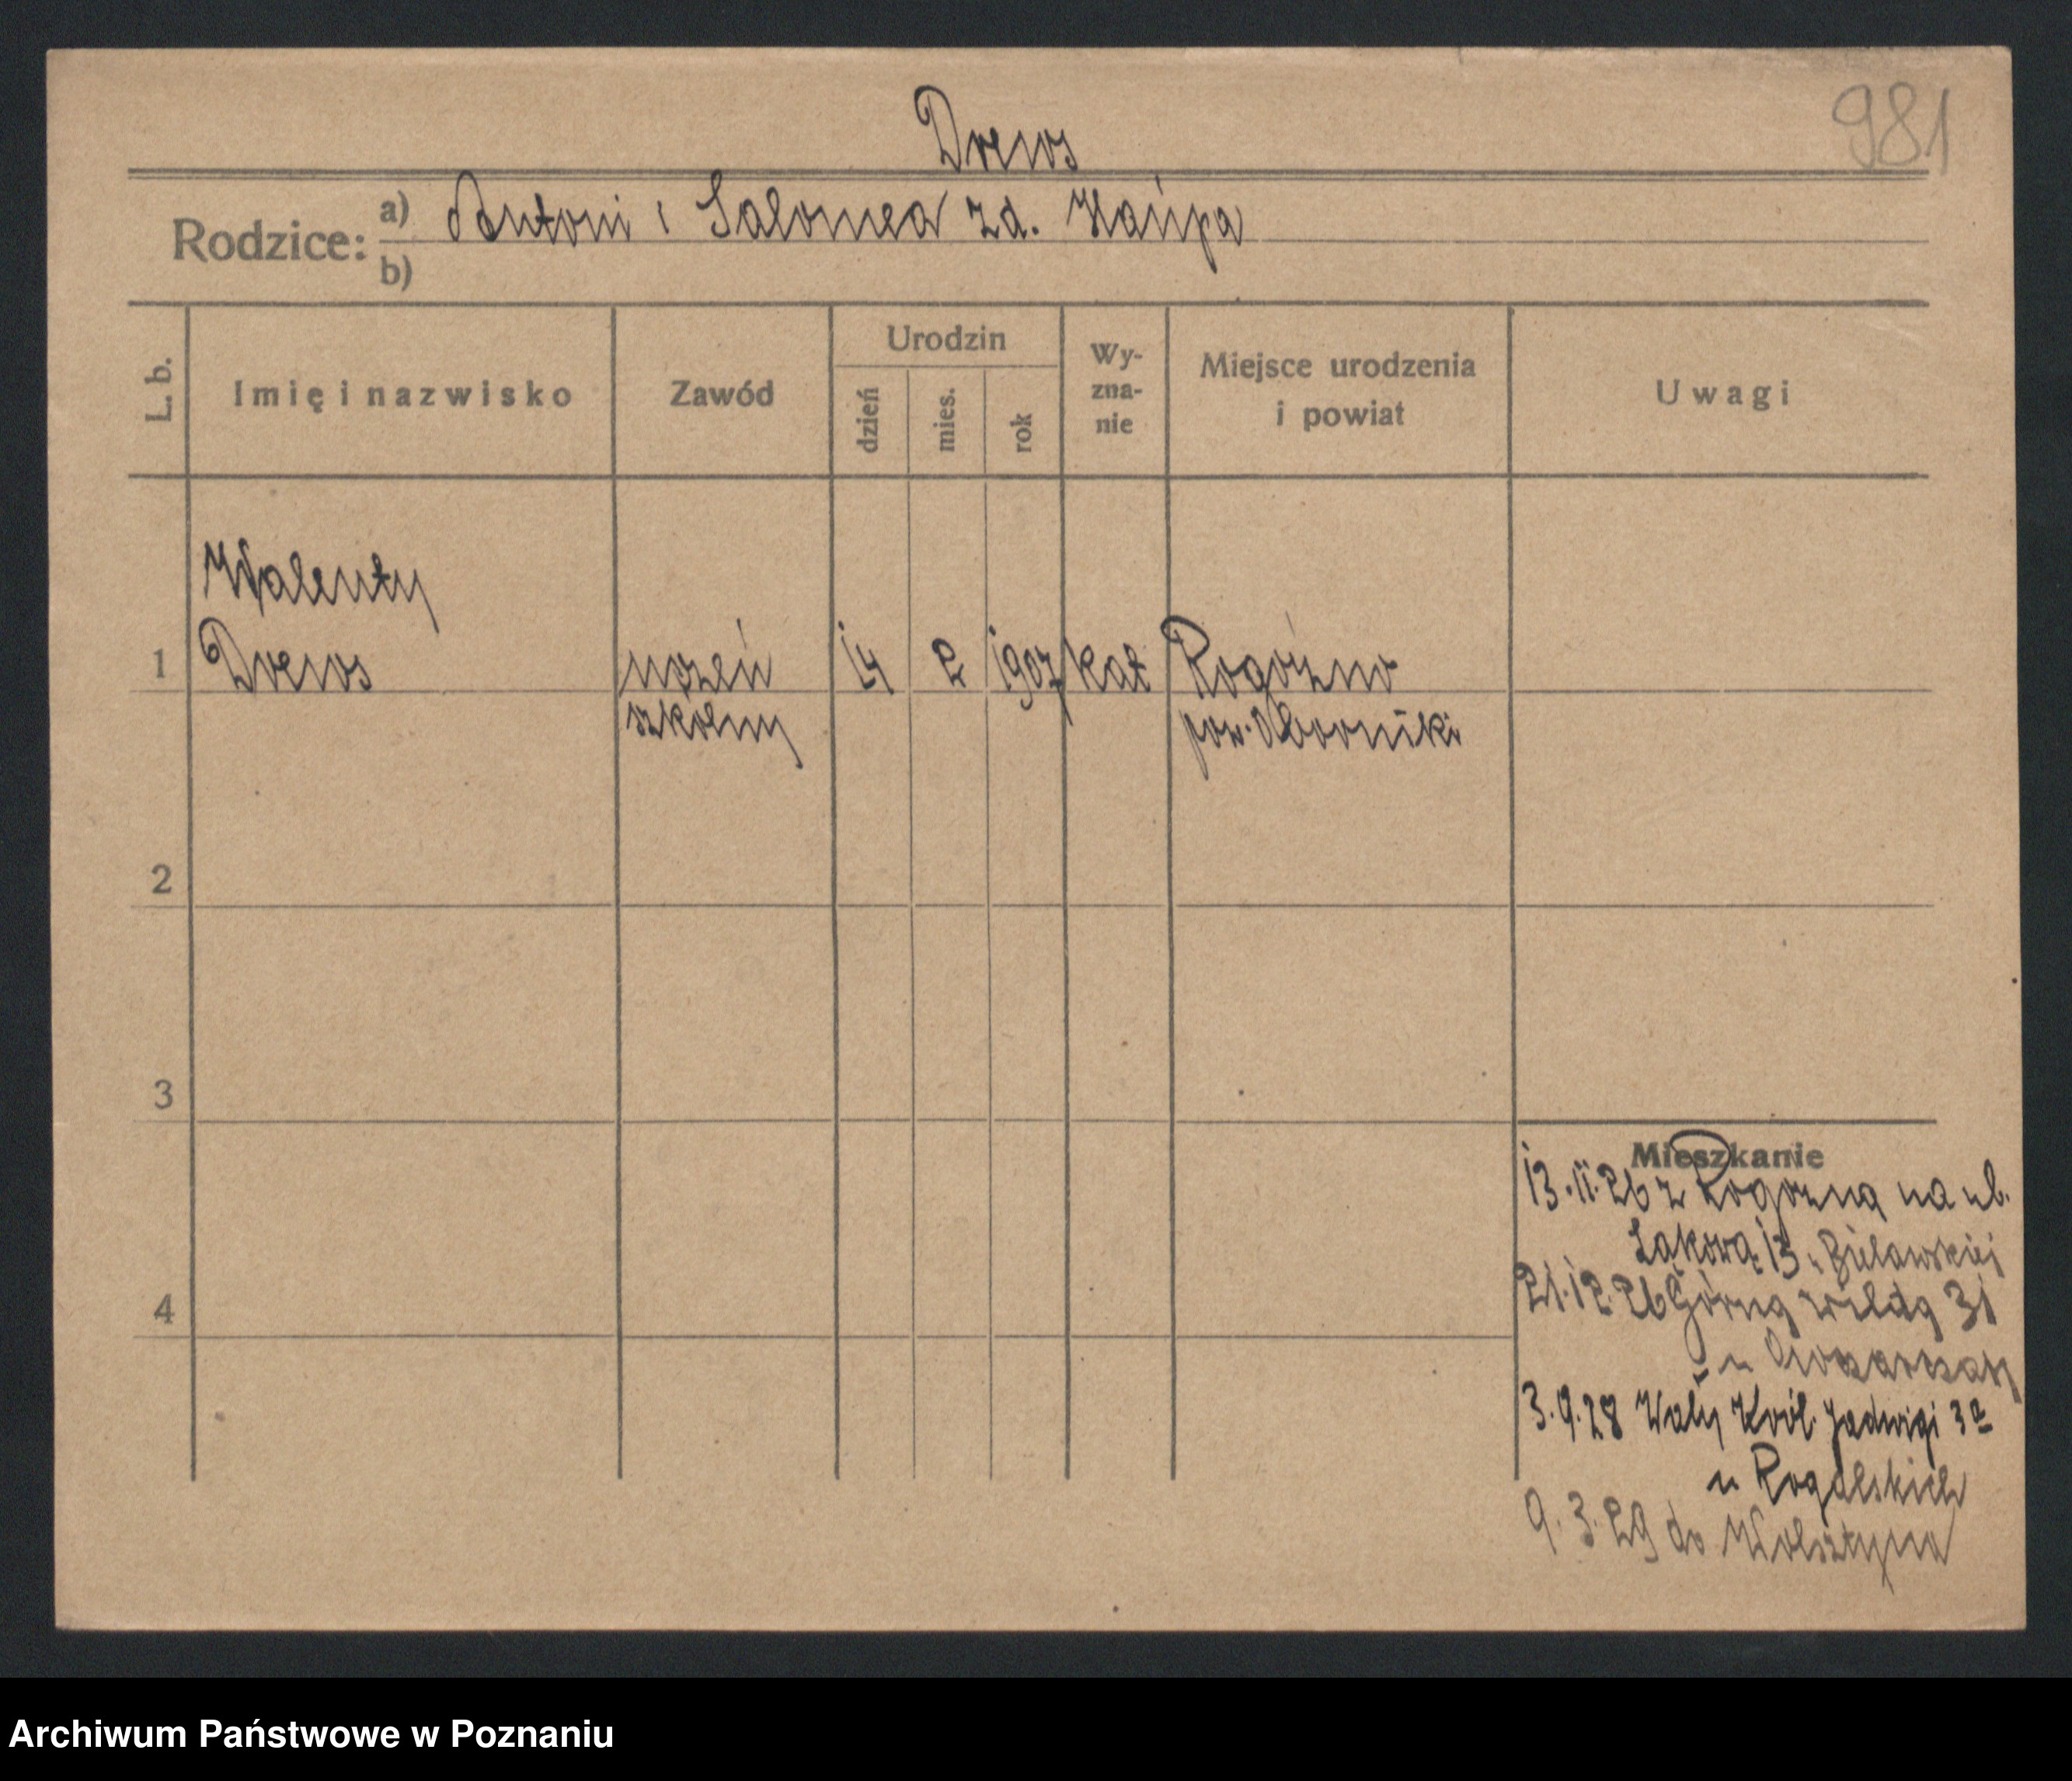 981
Drews
Rodzice: a) Antoni i Salomea zd. Haŭpa
b)
L. b. Imię i nazwisko Zawód Urodzin dzień mies. rok Wy-zna-nie Miejsce urodzenia i powiat Uwagi
Walenty
1 Drews uczeń 14 2 1907 kat Rogoźno
szkolny pow. Oborniki
2
3
Mieszkanie
13.11.26 z Rogoźna na ul.
Łąkową 13 u Bielawskiej
4
21.12.26 Górną Wildą 31
u
3.9.28 Wały Król. Jadwigi 3a
u Rogalskich
9.3.29 do Wolsztyna
Archiwum Państwowe w Poznaniu